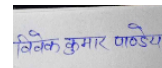 विवेक कुमार पाण्डेय